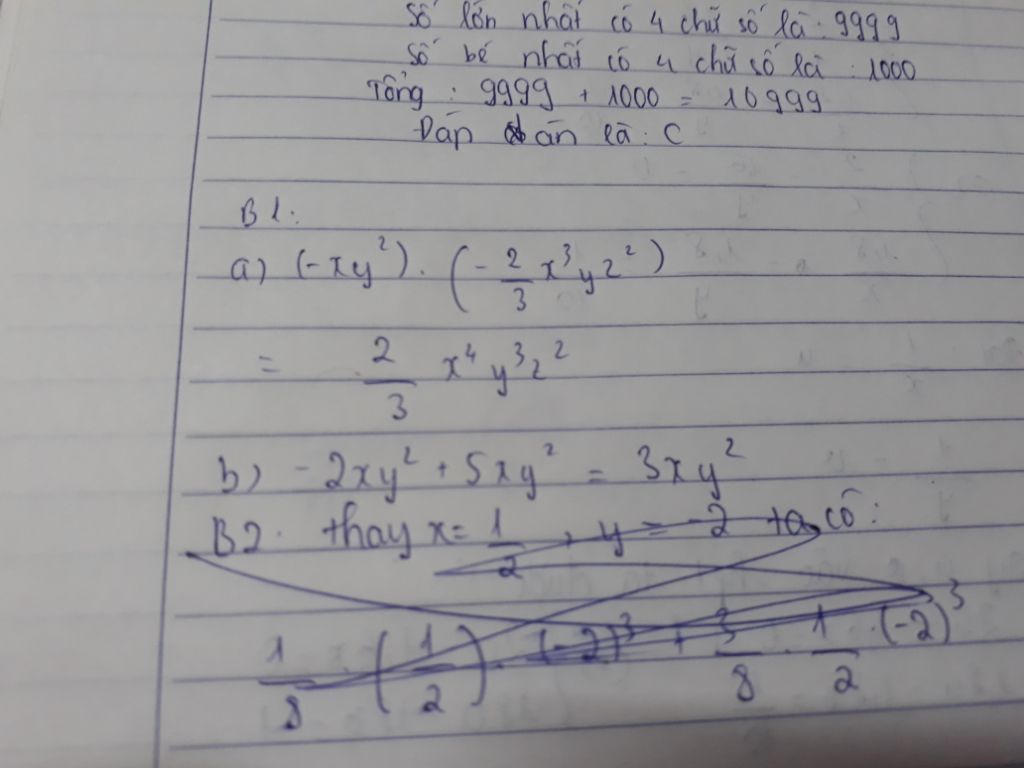 Số lớn nhất có 4 chữ số là: 9999
Số bé nhất có 4 chữ số là: 1000
Tổng: 9999 + 1000 = 10999
Đáp án là: C
B1:
a) (-xy²).(-2/3 x³yz²)
= 2/3 x⁴y³z²
b) -2xy² + 5xy² = 3xy²
B2. thay x = 1/2, y = -2 ta có:
1/8 (1/2).(-2)³ + 3/8 . 1/2 .(-2)³